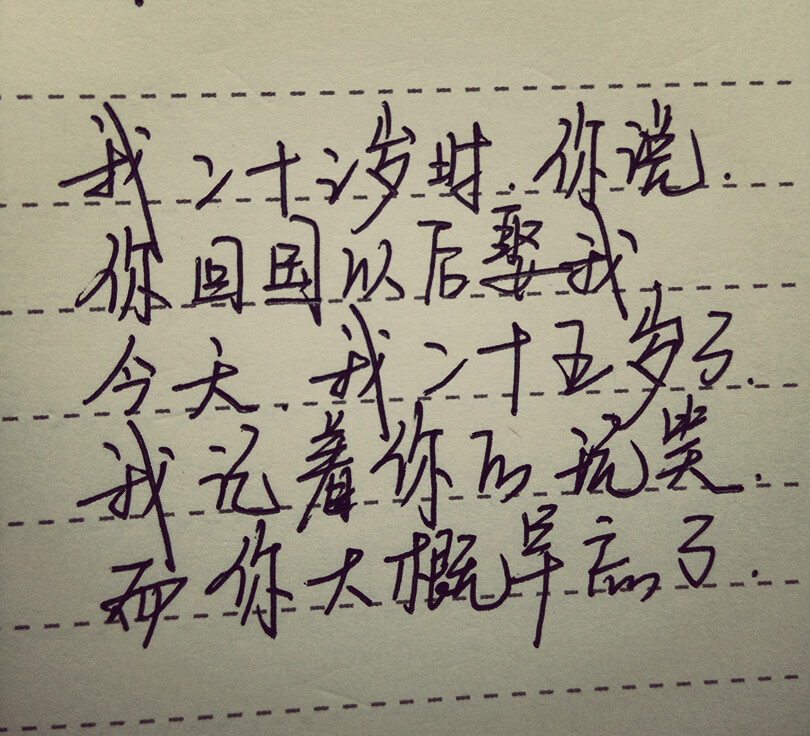 我二十三岁时.你说.
你回国以后娶我
今天.我二十五岁了.
我记着你的玩笑.
而你大概早忘了.